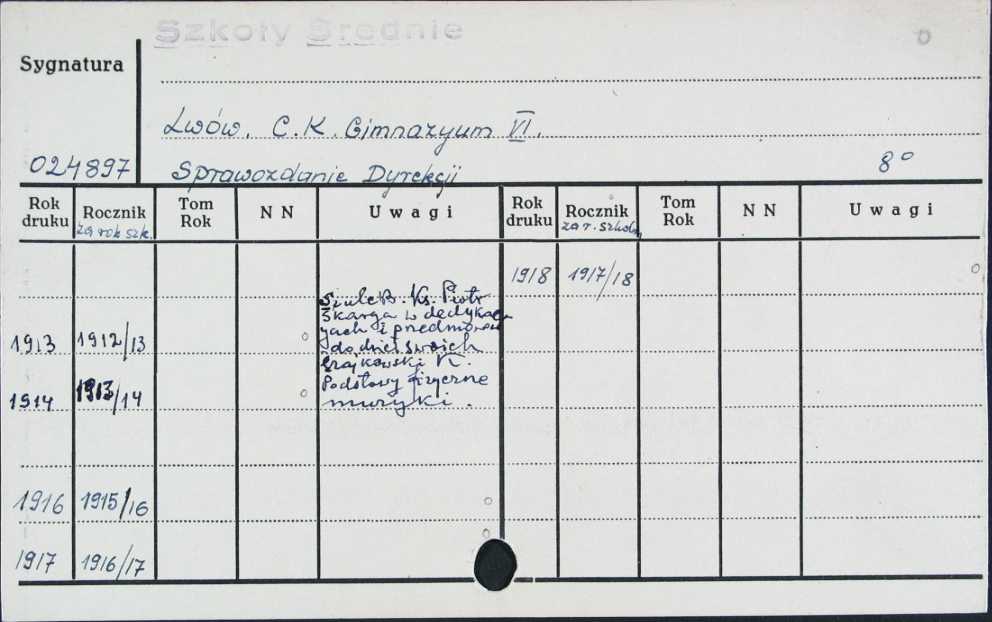 Szkoły Średnie
Sygnatura
Lwów. C.K. Gimnazyum VI.
024897 Sprawozdanie Dyrekcji 8°
Rok druku Rocznik za rok szk. Tom Rok N N Uwagi Rok druku Rocznik za r. szkoln. Tom Rok N N Uwagi
1918 1917/18
Szulc B. Ks. Piotr
Skarga w dedykac
1913 1912/13 yach i przedmowach
do dzieł swoich
Czajkowski K.
1914 1913/14 Podstawy fizyczne
muzyki.
1916 1915/16
1917 1916/17